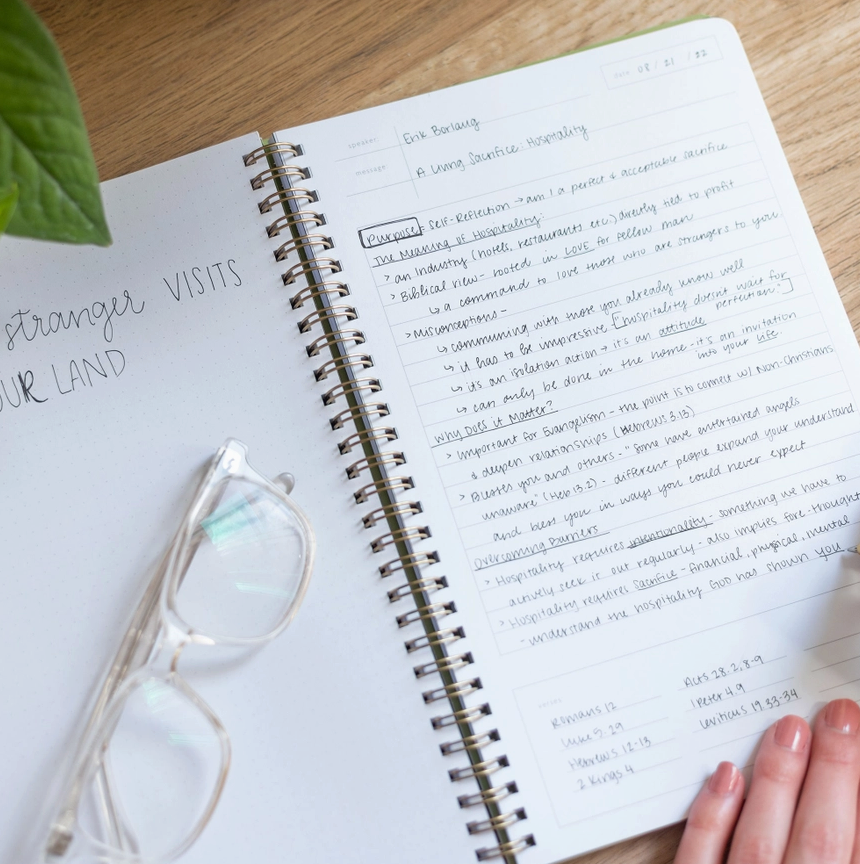 stranger VISITS
OUR LAND
date 08 / 21 / 22
speaker Erik Borlaug
message A Living Sacrifice: Hospitality
Purpose = Self-Reflection → am I a perfect & acceptable sacrifice
The Meaning of Hospitality:
> an Industry (hotels, restaurants etc.) directly tied to profit
> Biblical view - rooted in LOVE for fellow man
↳ a command to love those who are strangers to you.
> Misconceptions -
↳ communing with those you already know well
↳ it has to be impressive ["hospitality doesn't wait for perfection."]
↳ it's an isolation action → it's an attitude
↳ can only be done in the home - it's an invitation into your life.
Why Does it Matter?
> Important for Evangelism - the point is to connect w/ Non-Christians
& deepen relationships (Hebrews 3.13)
> Blesses you and others - "Some have entertained angels
unaware" (Heb 13.2) - different people expand your understand
and bless you in ways you could never expect
Overcoming Barriers
> Hospitality requires intentionality - something we have to
actively seek it out regularly - also implies fore-thought
> Hospitality requires Sacrifice - financial, physical, mental
- understand the hospitality God has shown you
Romans 12
Luke 5.29
Hebrews 12-13
2 Kings 4
Acts 28.2, 8-9
1 Peter 4.9
Leviticus 19.33-34